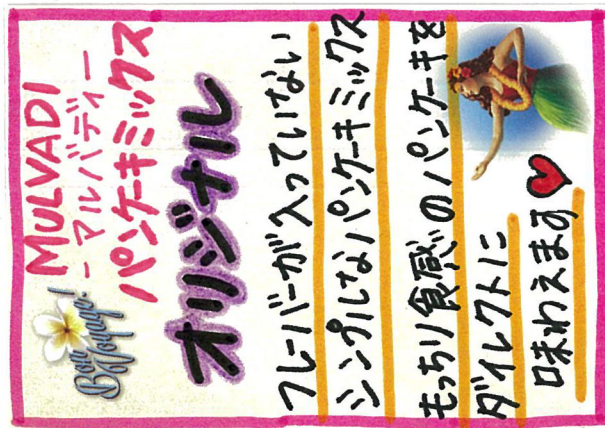 Bon Voyage!
MULVADI
-マルバディー
パンケーキミックス
オリジナル
フレーバーが入っていない
シンプルなパンケーキミックス
もっちり食感のパンケーキを
ダイレクトに
味わえます